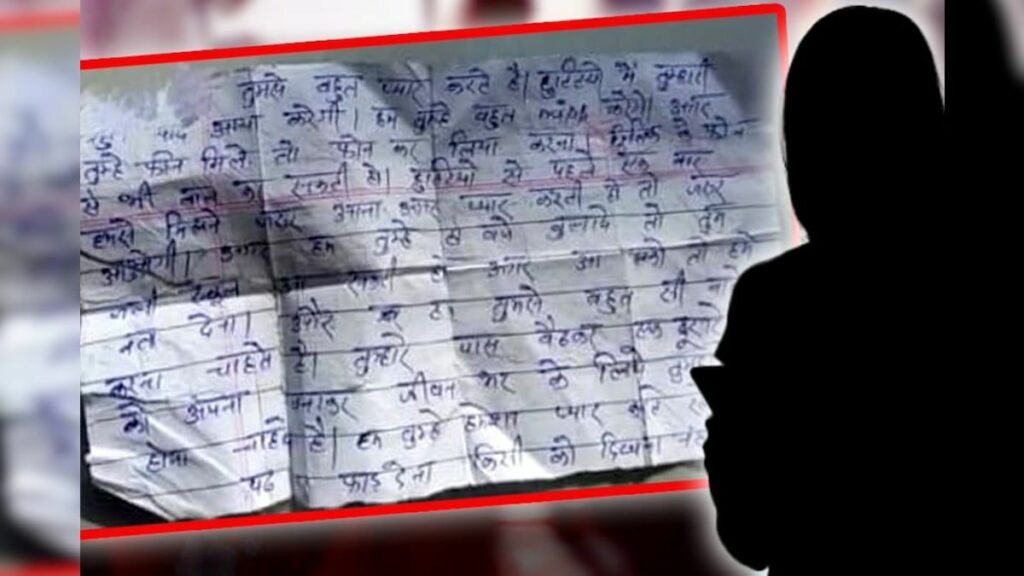 तुमसे बहुत प्यार करते है। छुट्टियो में तुम्हारी
याद आया करेगी। हम तुम्हे बहुत करेगे। अगर
तुम्हे फोन मिले तो फोन कर लिया करना। फोन
से भी सकती हो। छुट्टियो से पहले एक बार
हमसे मिलने जरूर आना अगर प्यार करती हो तो जरूर
आओगी। अगर हम तुम्हे 8 बजे बुलादे तो तुम
जल्दी स्कूल आ सकती हो अगर आ सको तो हमे
बता देना। और हम तुमसे बहुत सी
करना चाहते है। तुम्हारे पास बैठकर एक दूसरे
को अपना बनाकर जीवन भर के लिये
होना चाहते है। हम तुम्हे हमेशा प्यार
पढ फाड़ देना किसी को दिखाना